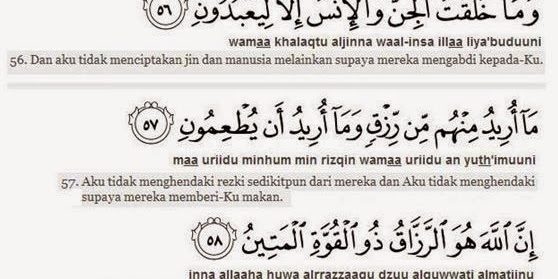 وَمَا خَلَقْتُ الْجِنَّ وَالْإِنْسَ إِلَّا لِيَعْبُدُونِ ٥٦
wamaa khalaqtu aljinna waal-insa illaa liya'buduuni
56. Dan aku tidak menciptakan jin dan manusia melainkan supaya mereka mengabdi kepada-Ku.
مَآ أُرِيدُ مِنْهُم مِّن رِّزْقٍ وَمَآ أُرِيدُ أَن يُطْعِمُونِ ٥٧
maa uriidu minhum min rizqin wamaa uriidu an yuth'imuuni
57. Aku tidak menghendaki rezki sedikitpun dari mereka dan Aku tidak menghendaki
supaya mereka memberi-Ku makan.
إِنَّ اللَّهَ هُوَ الرَّزَّاقُ ذُو الْقُوَّةِ الْمَتِينُ ٥٨
inna allaaha huwa alrrazzaaqu dzuu alquwwati almatiinu